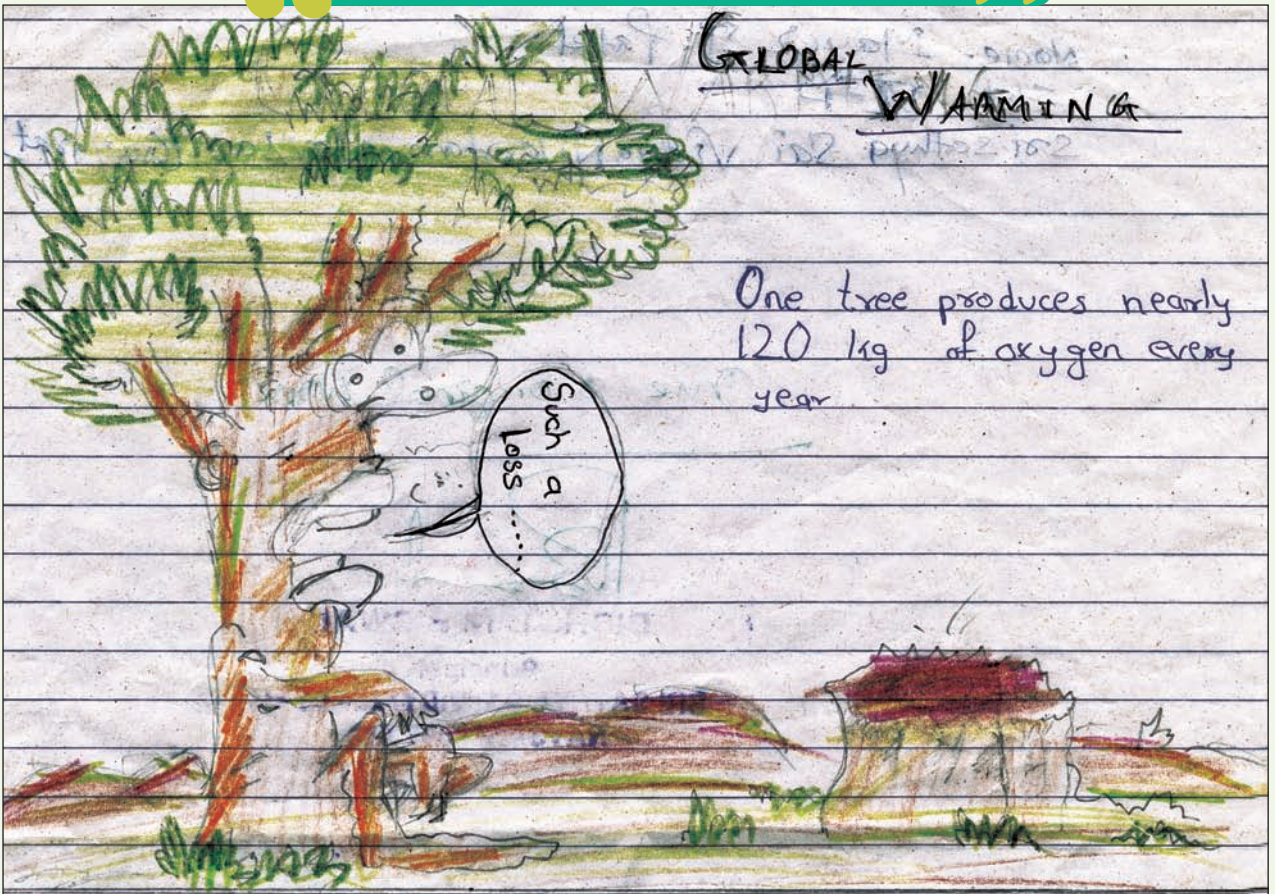 GLOBAL
WARMING
One tree produces nearly
120 kg of oxygen every
year
Such a
Loss ......